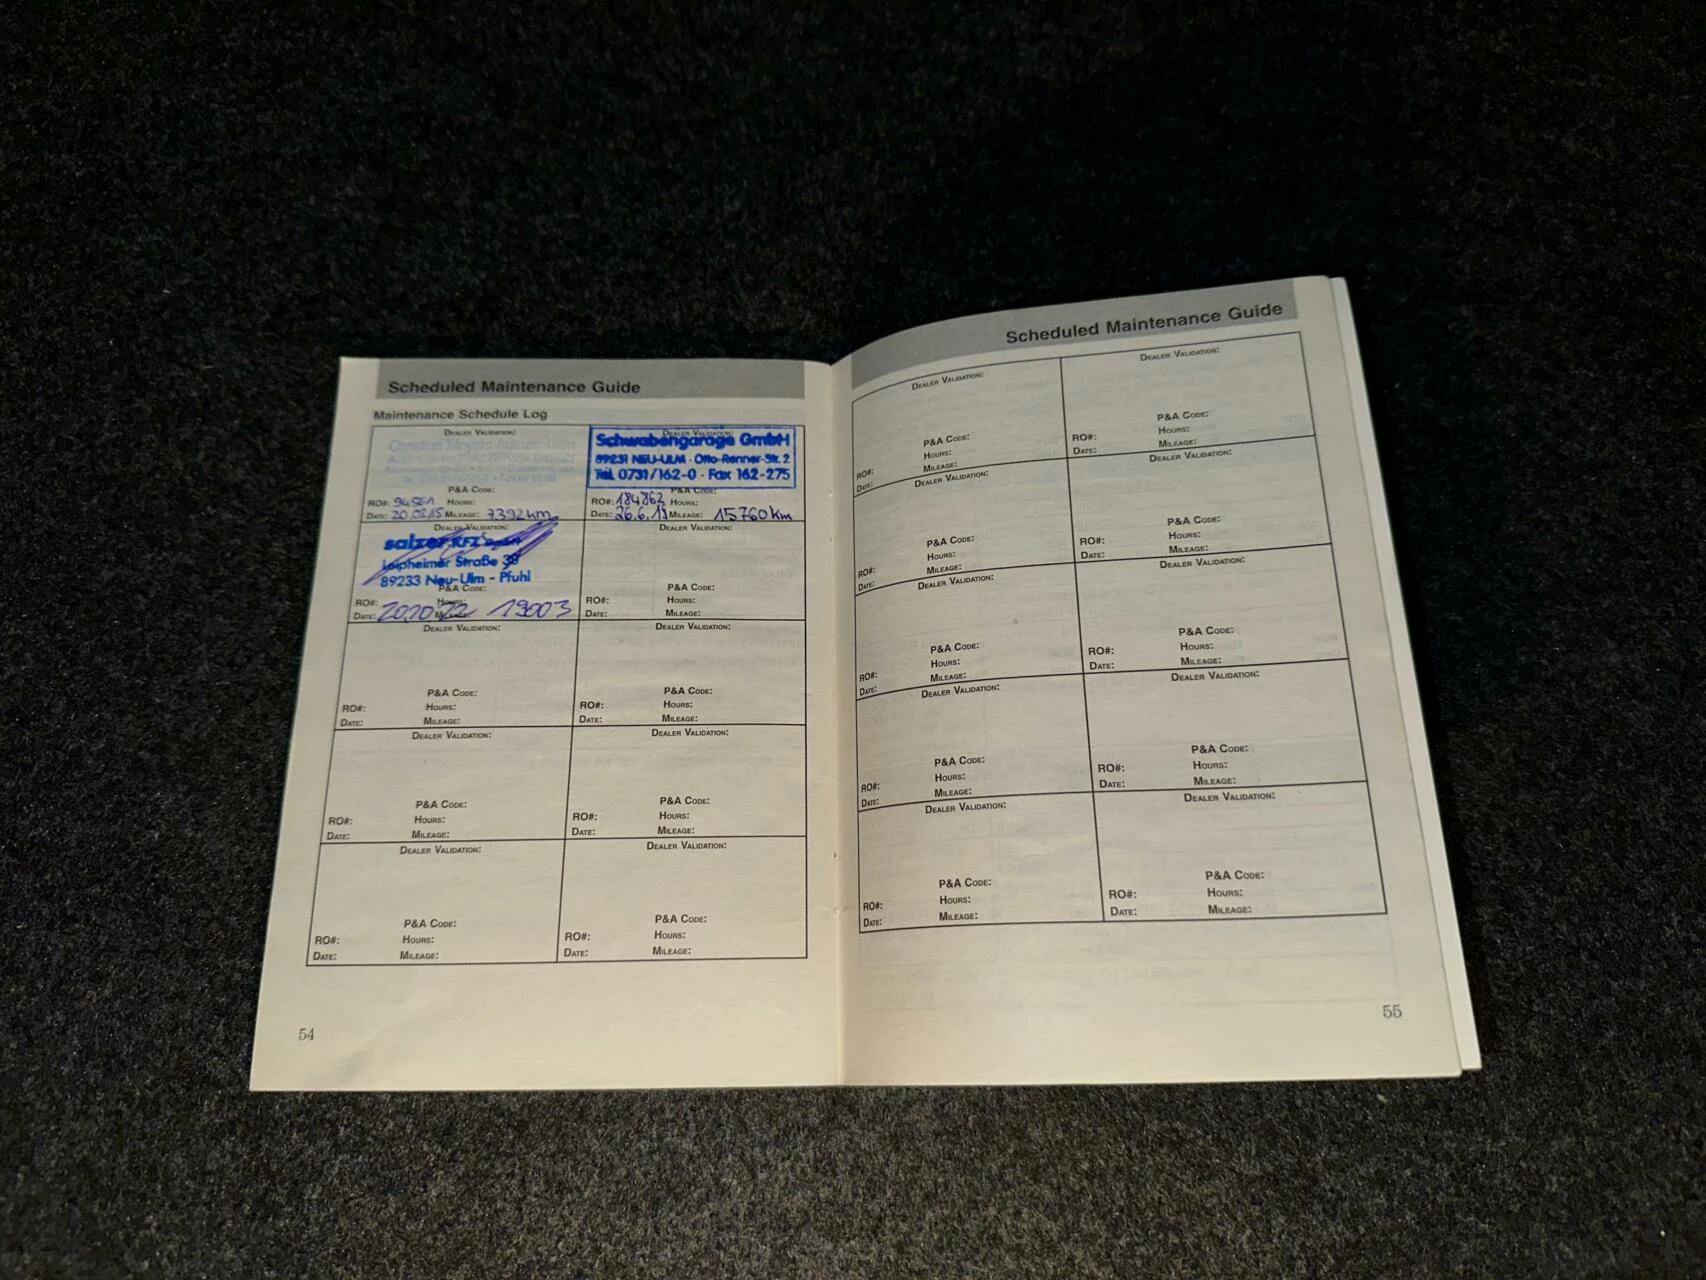 Scheduled Maintenance Guide
Maintenance Schedule Log
DEALER VALIDATION:
P&A CODE:
RO#: 94561 HOURS:
DATE: 20.02.15 MILEAGE: 7392 km
DEALER VALIDATION:
Schwabengarage GmbH
89231 NEU-ULM · Otto-Renner-Str. 2
Tel. 0731/162-0 · Fax 162-275
P&A CODE:
RO#: 184862 HOURS:
DATE: 26.6.19 MILEAGE: 15760 km
DEALER VALIDATION:
salzer KFZ
Leipheimer Straße 38
89233 Neu-Ulm - Pfuhl
P&A CODE:
RO#: HOURS:
DATE: 20.10.22 MILEAGE: 19003
DEALER VALIDATION:
P&A CODE:
RO#: HOURS:
DATE: MILEAGE:
DEALER VALIDATION:
P&A CODE:
RO#: HOURS:
DATE: MILEAGE:
DEALER VALIDATION:
P&A CODE:
RO#: HOURS:
DATE: MILEAGE:
DEALER VALIDATION:
P&A CODE:
RO#: HOURS:
DATE: MILEAGE:
DEALER VALIDATION:
P&A CODE:
RO#: HOURS:
DATE: MILEAGE:
DEALER VALIDATION:
P&A CODE:
RO#: HOURS:
DATE: MILEAGE:
DEALER VALIDATION:
P&A CODE:
RO#: HOURS:
DATE: MILEAGE:
54
Scheduled Maintenance Guide
DEALER VALIDATION:
P&A CODE:
HOURS:
RO#: MILEAGE:
DATE:
DEALER VALIDATION:
P&A CODE:
RO#: HOURS:
DATE: MILEAGE:
DEALER VALIDATION:
P&A CODE:
HOURS:
RO#: MILEAGE:
DATE:
DEALER VALIDATION:
P&A CODE:
RO#: HOURS:
DATE: MILEAGE:
DEALER VALIDATION:
P&A CODE:
HOURS:
RO#: MILEAGE:
DATE:
DEALER VALIDATION:
P&A CODE:
RO#: HOURS:
DATE: MILEAGE:
DEALER VALIDATION:
P&A CODE:
RO#: HOURS:
DATE: MILEAGE:
DEALER VALIDATION:
P&A CODE:
RO#: HOURS:
DATE: MILEAGE:
DEALER VALIDATION:
P&A CODE:
RO#: HOURS:
DATE: MILEAGE:
DEALER VALIDATION:
P&A CODE:
RO#: HOURS:
DATE: MILEAGE:
55